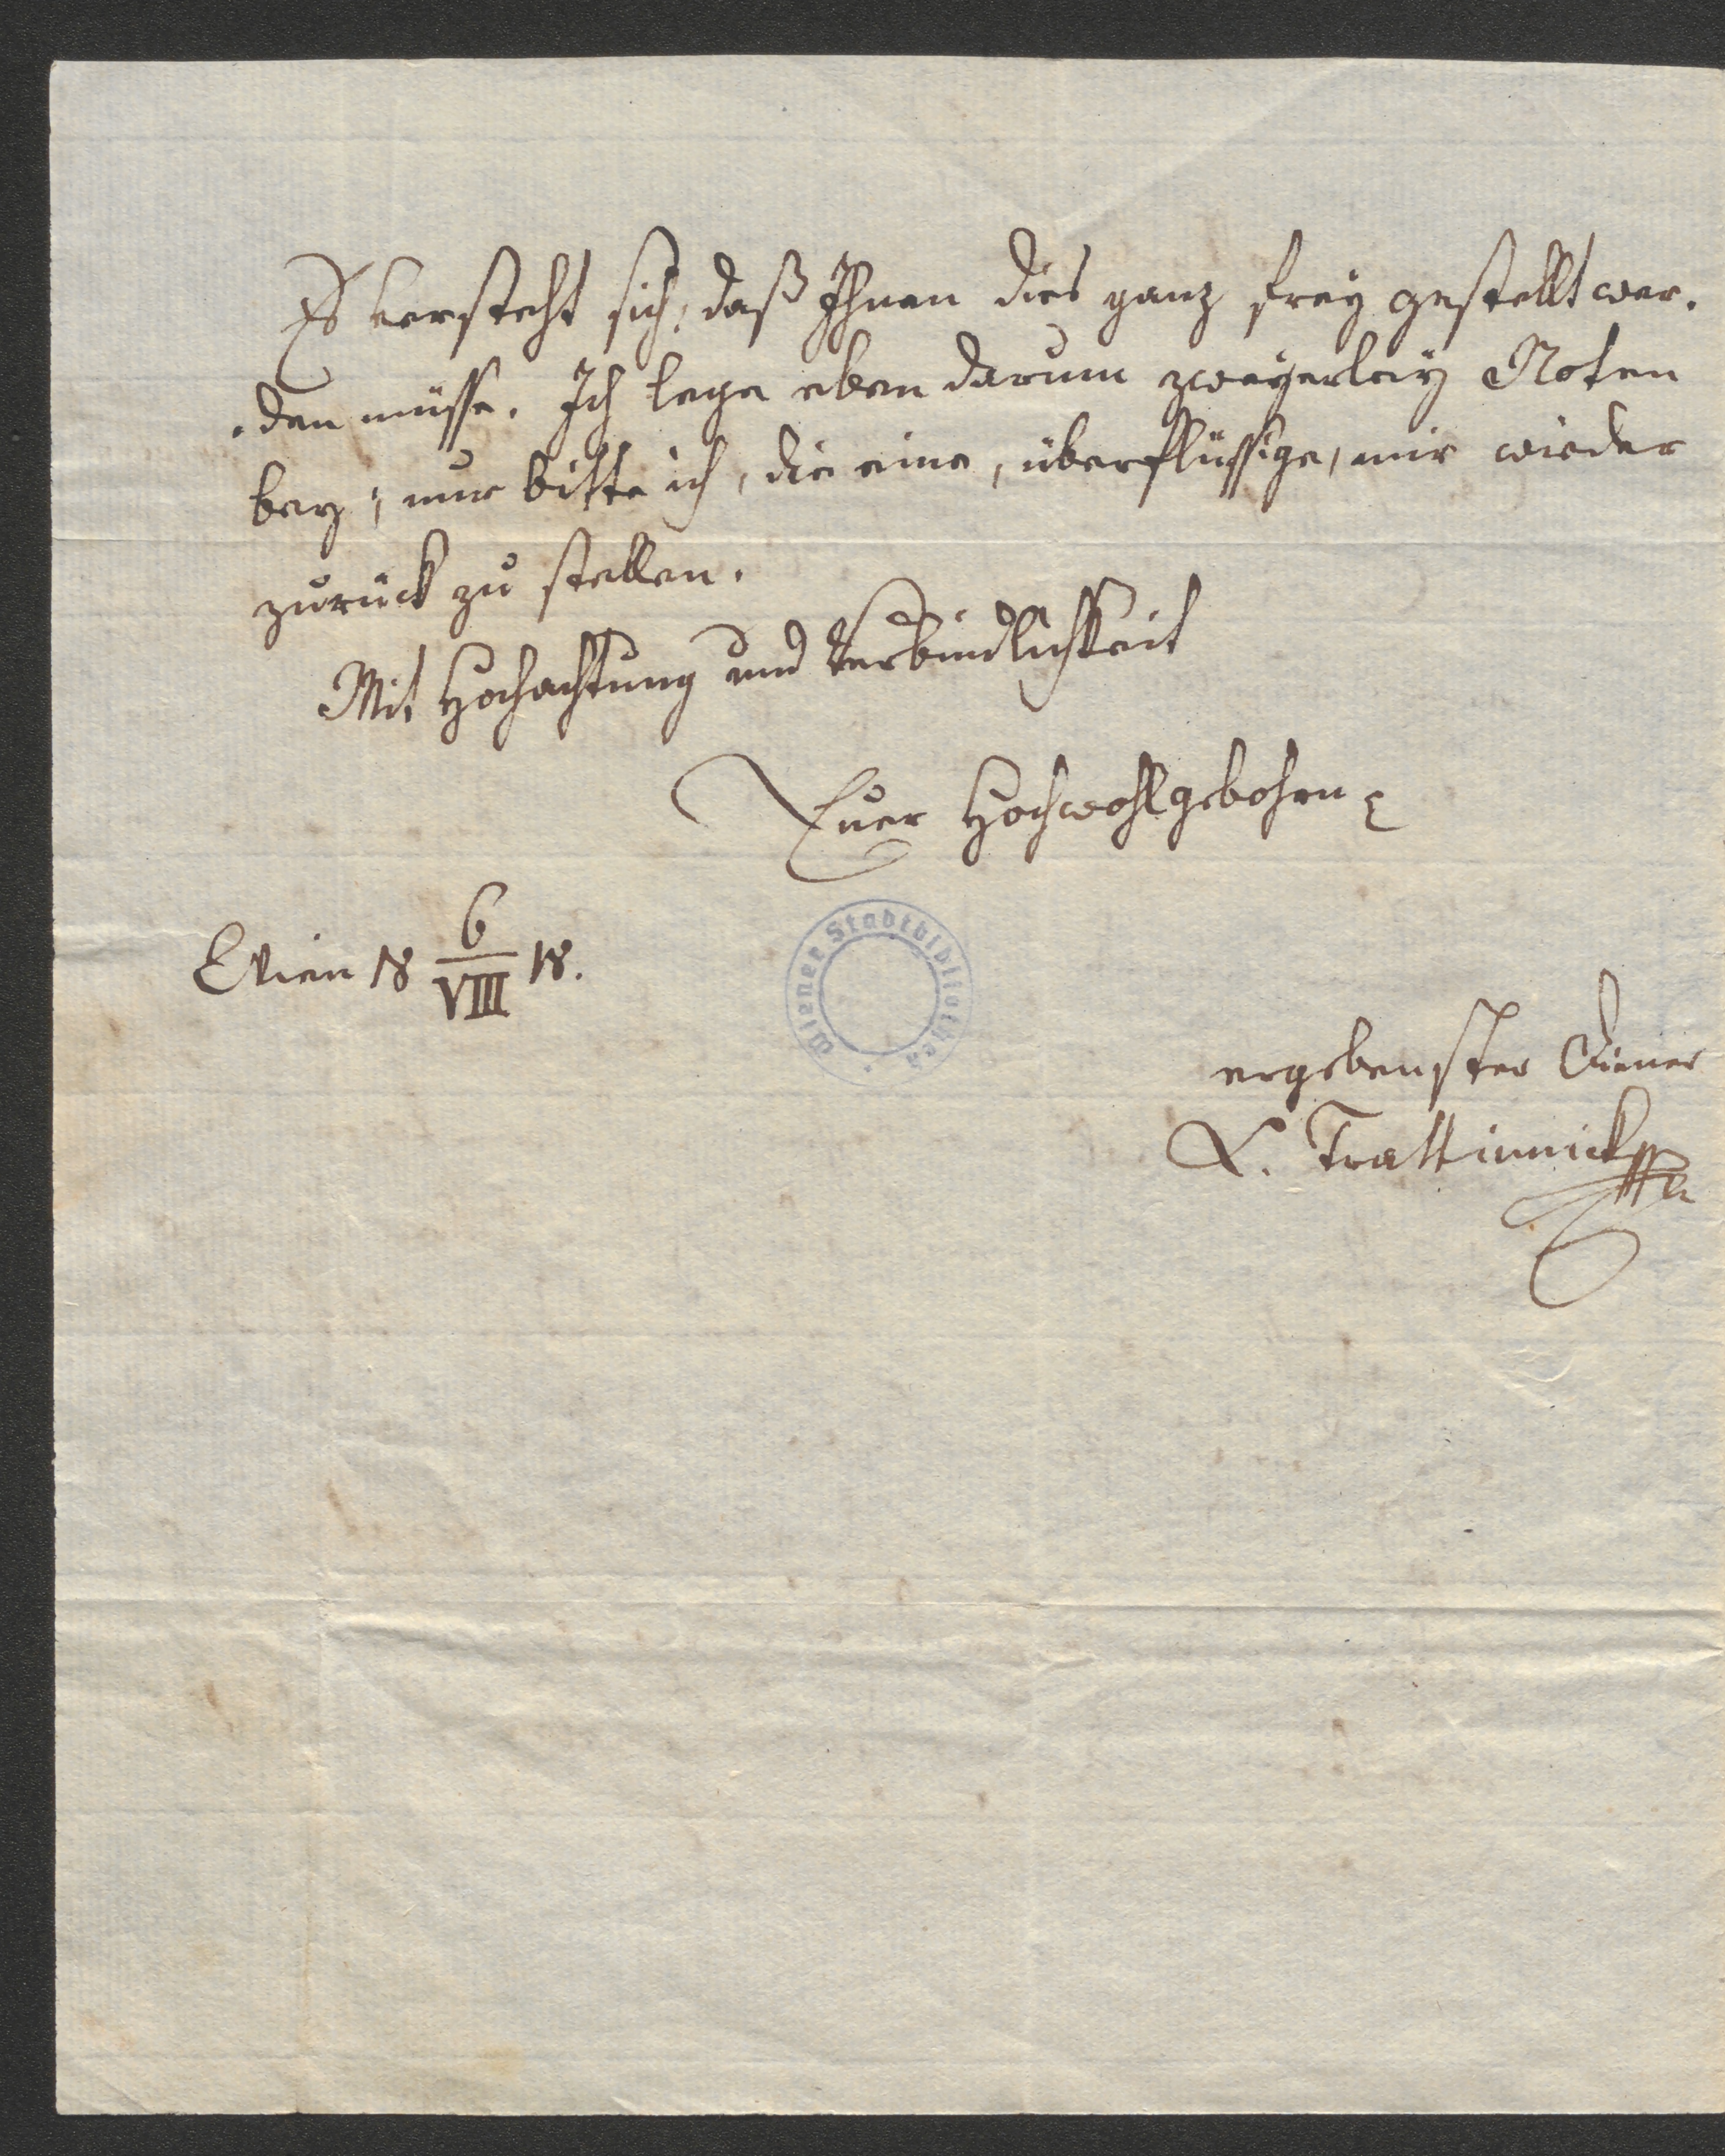 Es versteht sich, daß Ihnen dies ganz frey gestellt wer-
-den müsse. Ich lege eben darum zweyerley Noten
bey; nur bitte ich, die eine, überflüssige, mir wieder
zurück zu stellen.
Mit Hochachtung und Verbindlichkeit
Euer Hochwohlgebohrn
Wien 18 6/VIII 18.
Wiener Stadtbibliothek
ergebenster Diener
L. Trattinnick